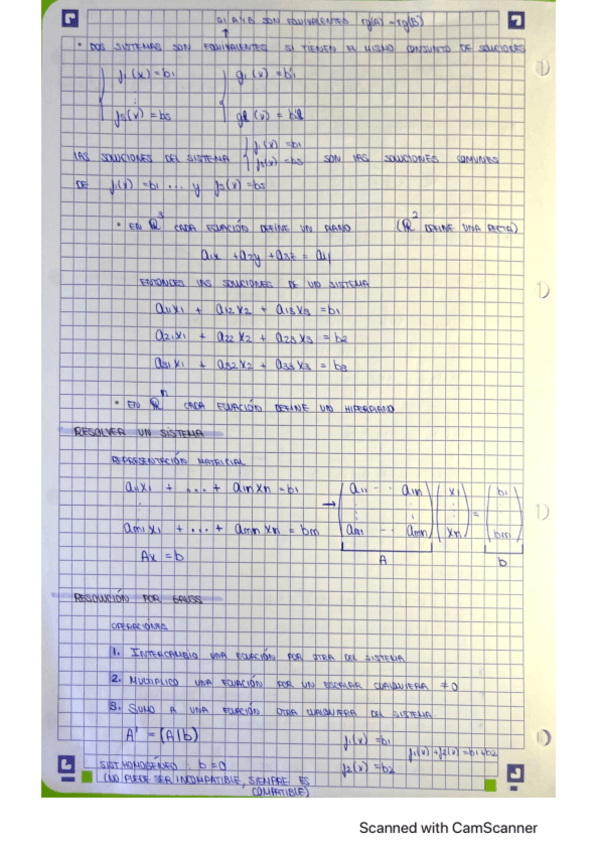 SI A Y B SON EQUIVALENTES rg(A) = rg(B)
↑
• DOS SISTEMAS SON EQUIVALENTES SI TIENEN EL MISMO CONJUNTO DE SOLUCIONES
f1(x) = b1 g1(v) = b'1
⋮
fs(v) = bs gl(v) = b'l
f1(v) = b1
LAS SOLUCIONES DEL SISTEMA fs(v) = bs SON LAS SOLUCIONES COMUNES
DE f1(v) = b1 ... y fs(v) = bs
• EN ℝ³ CADA ECUACIÓN DEFINE UN PLANO (ℝ² DEFINE UNA RECTA)
a1x + a2y + a3z = a4
ENTONCES LAS SOLUCIONES DE UN SISTEMA
a11x1 + a12x2 + a13x3 = b1
a21x1 + a22x2 + a23x3 = b2
a31x1 + a32x2 + a33x3 = b3
• EN ℝⁿ CADA ECUACIÓN DEFINE UN HIPERPLANO
RESOLVER UN SISTEMA
REPRESENTACIÓN MATRICIAL
a11x1 + ... + a1nxn = b1 a11 ... a1n x1 b1
⋮ → ⋮ ⋮ ⋮ = ⋮
am1x1 + ... + amnxn = bm am1 ... amn xn bm
Ax = b A b
RESOLUCIÓN POR GAUSS
OPERACIONES
1. INTERCAMBIO UNA ECUACIÓN POR OTRA DEL SISTEMA
2. MULTIPLICO UNA ECUACIÓN POR UN ESCALAR CUALQUIERA ≠0
3. SUMO A UNA ECUACIÓN OTRA CUALQUIERA DEL SISTEMA
A' = (A|b) f1(v) = b1
f1(v) + f2(v) = b1+b2
SIST HOMOGÉNEO : b=0 f2(v) = b2
(NO PUEDE SER INCOMPATIBLE, SIEMPRE ES
COMPATIBLE)
Scanned with CamScanner